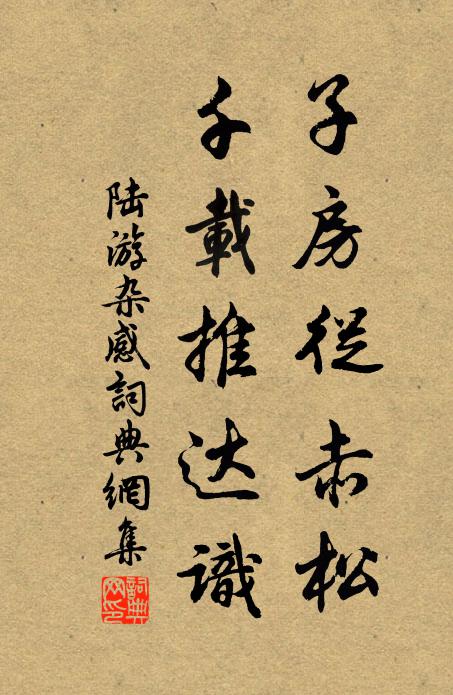 子房從赤松
千載推达識
陆游杂感詞典網集
詞典
网印